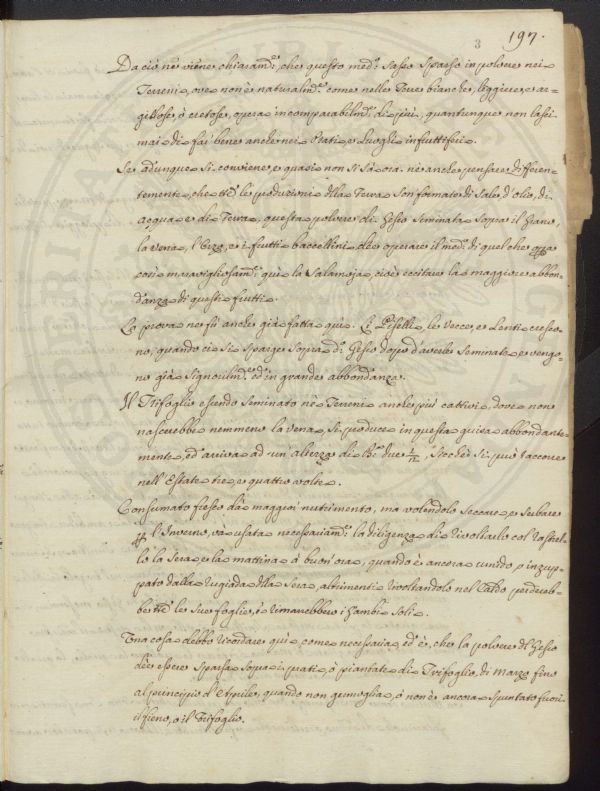 3 197.
Da ciò ne viene chiaram.e, che questo med.o Sasso Sparso in polvere nei
Terreni, ove non è naturalm.e come nelle Terre bianche, leggiere, e ar-
gillose, ò cretose, opera incomparabilm.e di più, quantunque non lasci
mai di far bene anche nei Prati, e Luoghi infruttiferi.
Se adunque si conviene, e quasi non si sà ora nè anche pensare differen-
temente, che tt.e le produzioni dlla Terra son formate di Sale, d'olio, di
acqua, e di Terra, questa polvere di Gesso Seminata Sopra il grano,
la Vena, l'Orzo, e i frutti baccellini dee operare il med.o di quel che opra
così maravigliosam.e qui la Salamoja, cioè eccitare la maggiore abbon-
danza di questi frutti.
La prova ne fù anche già fatta quì. Li Piselli, le Vecce, e Lenti cresco-
no, quando ci si sparge Sopra dl Gesso dopo d'averle Seminate, e vengo-
no già Signorilm.e ed in grande abbondanza.
Il Trifoglio essendo Seminato nè Terreni anche più cattivi, dove non
nascerebbe nemmeno la vena, Si produce in questa guisa abbondante-
mente, ed arriva ad un'altezza di Br. due 1/2, Sicchè Si può raccorre
nell'Estate tre, e quattro volte.
Consumato fresco dà maggior nutrimento, ma volendolo Seccare, e Serbare
p l'Inverno, và usata necessariam.e la diligenza di rivoltarlo col rastrel-
lo la Sera, e la mattina à buon'ora, quando è ancora umido, o inzup-
pato dalla rugiada dlla Sera, altrimenti rivoltandolo nel Caldo perdereb-
be tt.e le sue foglie, e rimarrebbero i gambi Soli.
Una cosa debbo ricordare quì, come necessaria, ed è, che la polvere dl Gesso
dèe essere Sparsa Sopra i prati, ò piantate di Trifoglio, di Marzo fino
al principio d'Aprile, quando non germoglia, ò non è ancora Spuntato fuori
il fieno, o il Trifoglio.